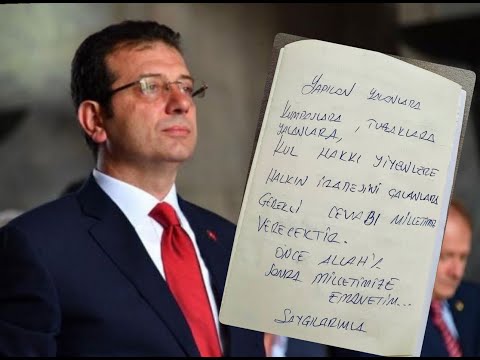 YAPILAN YOLONLARA
KUMPONLARA , TUZAKLARA
YALANLARA,
KUL HAKKI YİYENLERE
HALKIN İRADESİNİ ÇALANLARA
GEREKLİ CEVABI MİLLETİMİZ
VERECEKTİR.
ÖNCE ALLAH'A
SONRA MİLLETİMİZE
EMANETİM...
SAYGILARIMLA